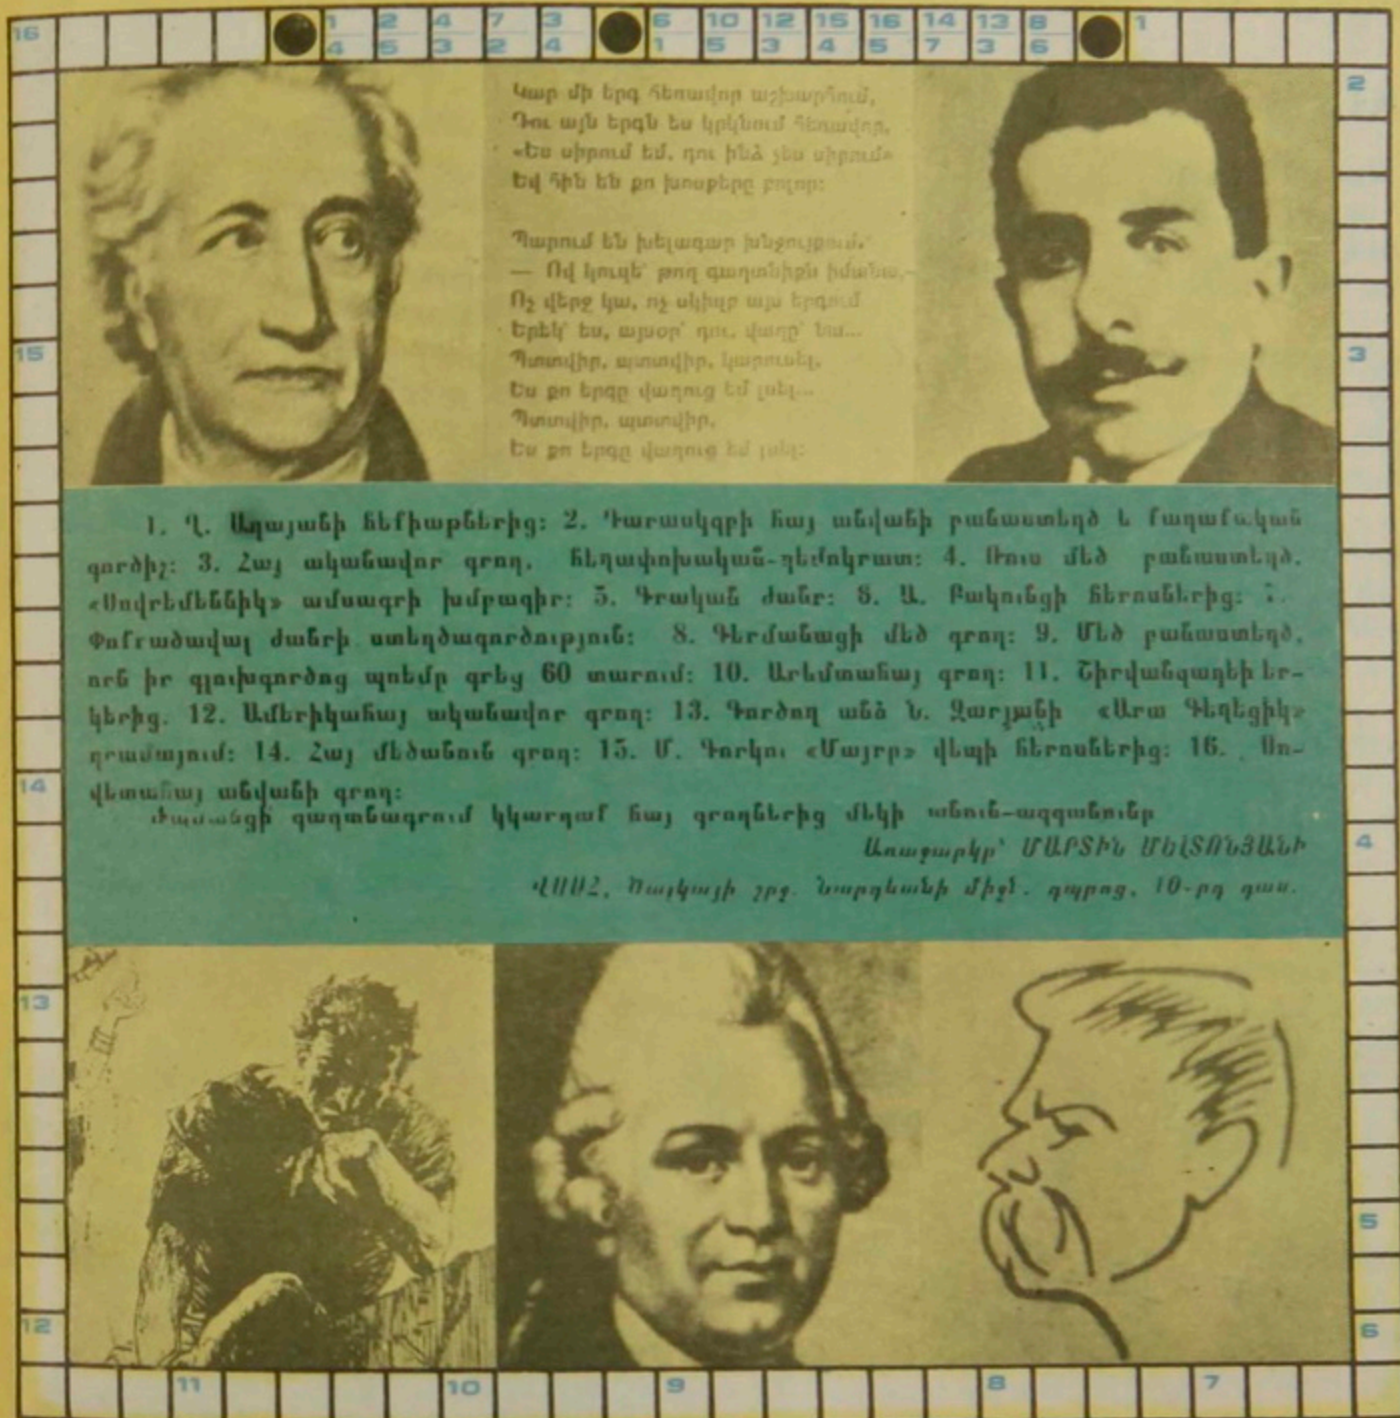 16 1 2 4 7 3 6 10 12 15 16 14 13 8 1
4 5 3 2 4 1 5 3 4 5 7 3 6
2
Կար մի երգ հեռավոր աշխարհում,
Դու այն երգն ես կրկնում հեռավոր,
«Ես սիրում եմ, դու ինձ չես սիրում»
Եվ հին են քո խոսքերը բոլոր:
Պարում են խելագար խնջույքում,
— Ով կուզե՝ թող գաղտնիքն իմանա,—
Ոչ վերջ կա, ոչ սկիզբ այս երգում
Երեկ՝ ես, այսօր՝ դու, վաղը՝ նա...
Պտտվիր, պտտվիր, կարուսել,
Ես քո երգը վաղուց եմ լսել...
Պտտվիր, պտտվիր,
Ես քո երգը վաղուց եմ լսել:
15
3
1. Ղ. Աղայանի հեքիաթներից: 2. Դարասկզբի հայ անվանի բանաստեղծ և քաղաքական
գործիչ: 3. Հայ ականավոր գրող, հեղափոխական-դեմոկրատ: 4. Ռուս մեծ բանաստեղծ,
«Սովրեմեննիկ» ամսագրի խմբագիր: 5. Գրական ժանր: 6. Ա. Բակունցի հերոսներից: 7.
Փոքրածավալ ժանրի ստեղծագործություն: 8. Գերմանացի մեծ գրող: 9. Մեծ բանաստեղծ,
որն իր գլուխգործոց պոեմը գրեց 60 տարում: 10. Արևմտահայ գրող: 11. Շիրվանզադեի եր-
կերից. 12. Ամերիկահայ ականավոր գրող: 13. Գործող անձ Ն. Զարյանի «Արա Գեղեցիկ»
դրամայում: 14. Հայ մեծանուն գրող: 15. Մ. Գորկու «Մայրը» վեպի հերոսներից: 16. Սո-
վետահայ անվանի գրող:
Ժապավենցի գաղտնագրում կկարդաք հայ գրողներից մեկի անուն-ազգանունը
Առաջարկը՝ ՄԱՐՏԻՆ ՄԵԼՏՈՆՅԱՆԻ
ՎՍՍՀ, Ծալկայի շրջ. Նարդևանի միջն. դպրոց, 10-րդ դաս.
14
4
13
5
12
6
11 10 9 8 7